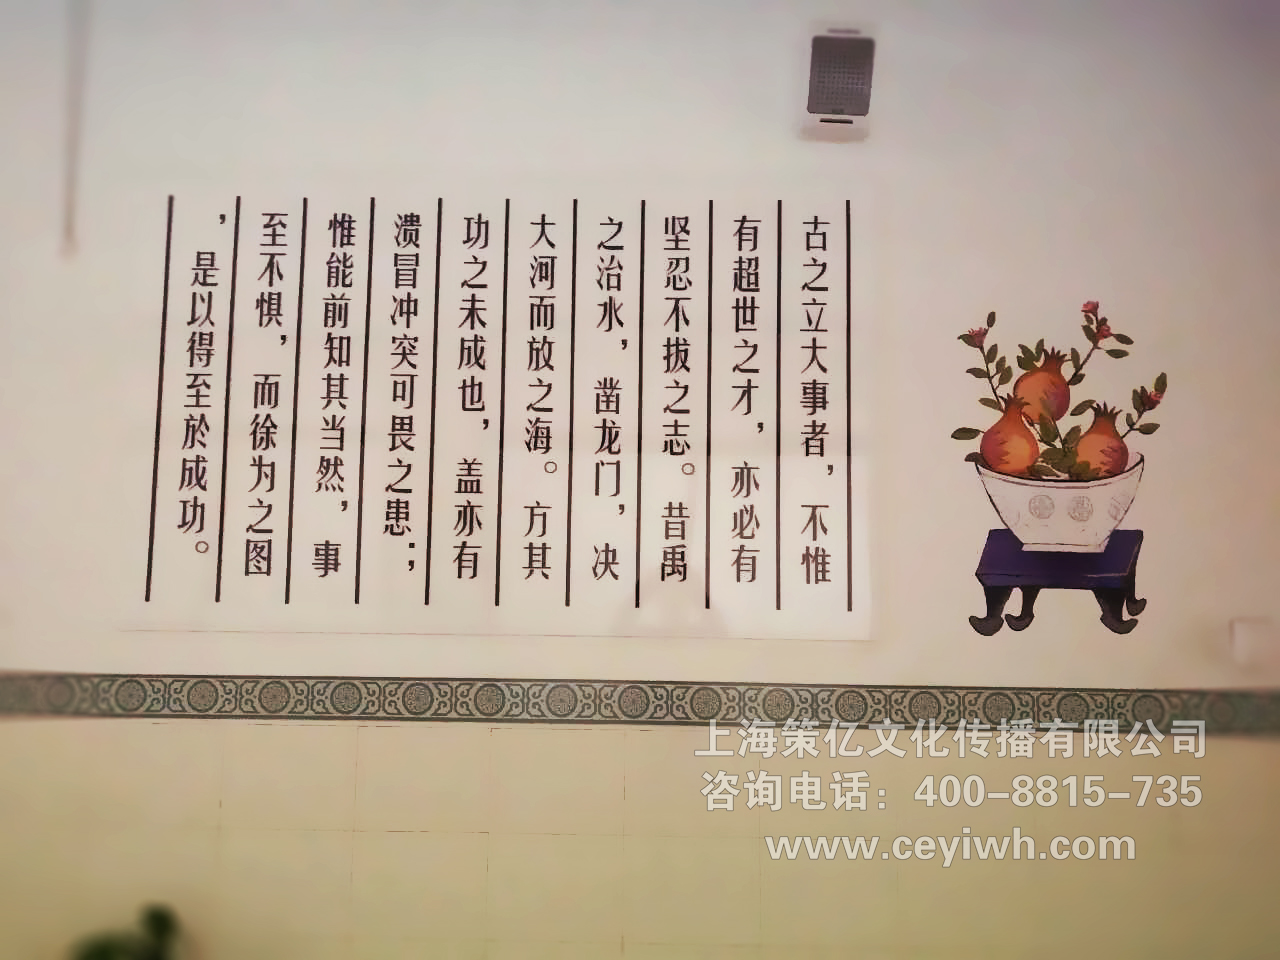 古之立大事者，不惟
有超世之才，亦必有
坚忍不拔之志。昔禹
之治水，凿龙门，决
大河而放之海。方其
功之未成也，盖亦有
溃冒冲突可畏之患；
惟能前知其当然，事
至不惧，而徐为之图
，是以得至於成功。
上海策亿文化传播有限公司
咨询电话：400-8815-735
www.ceyiwh.com